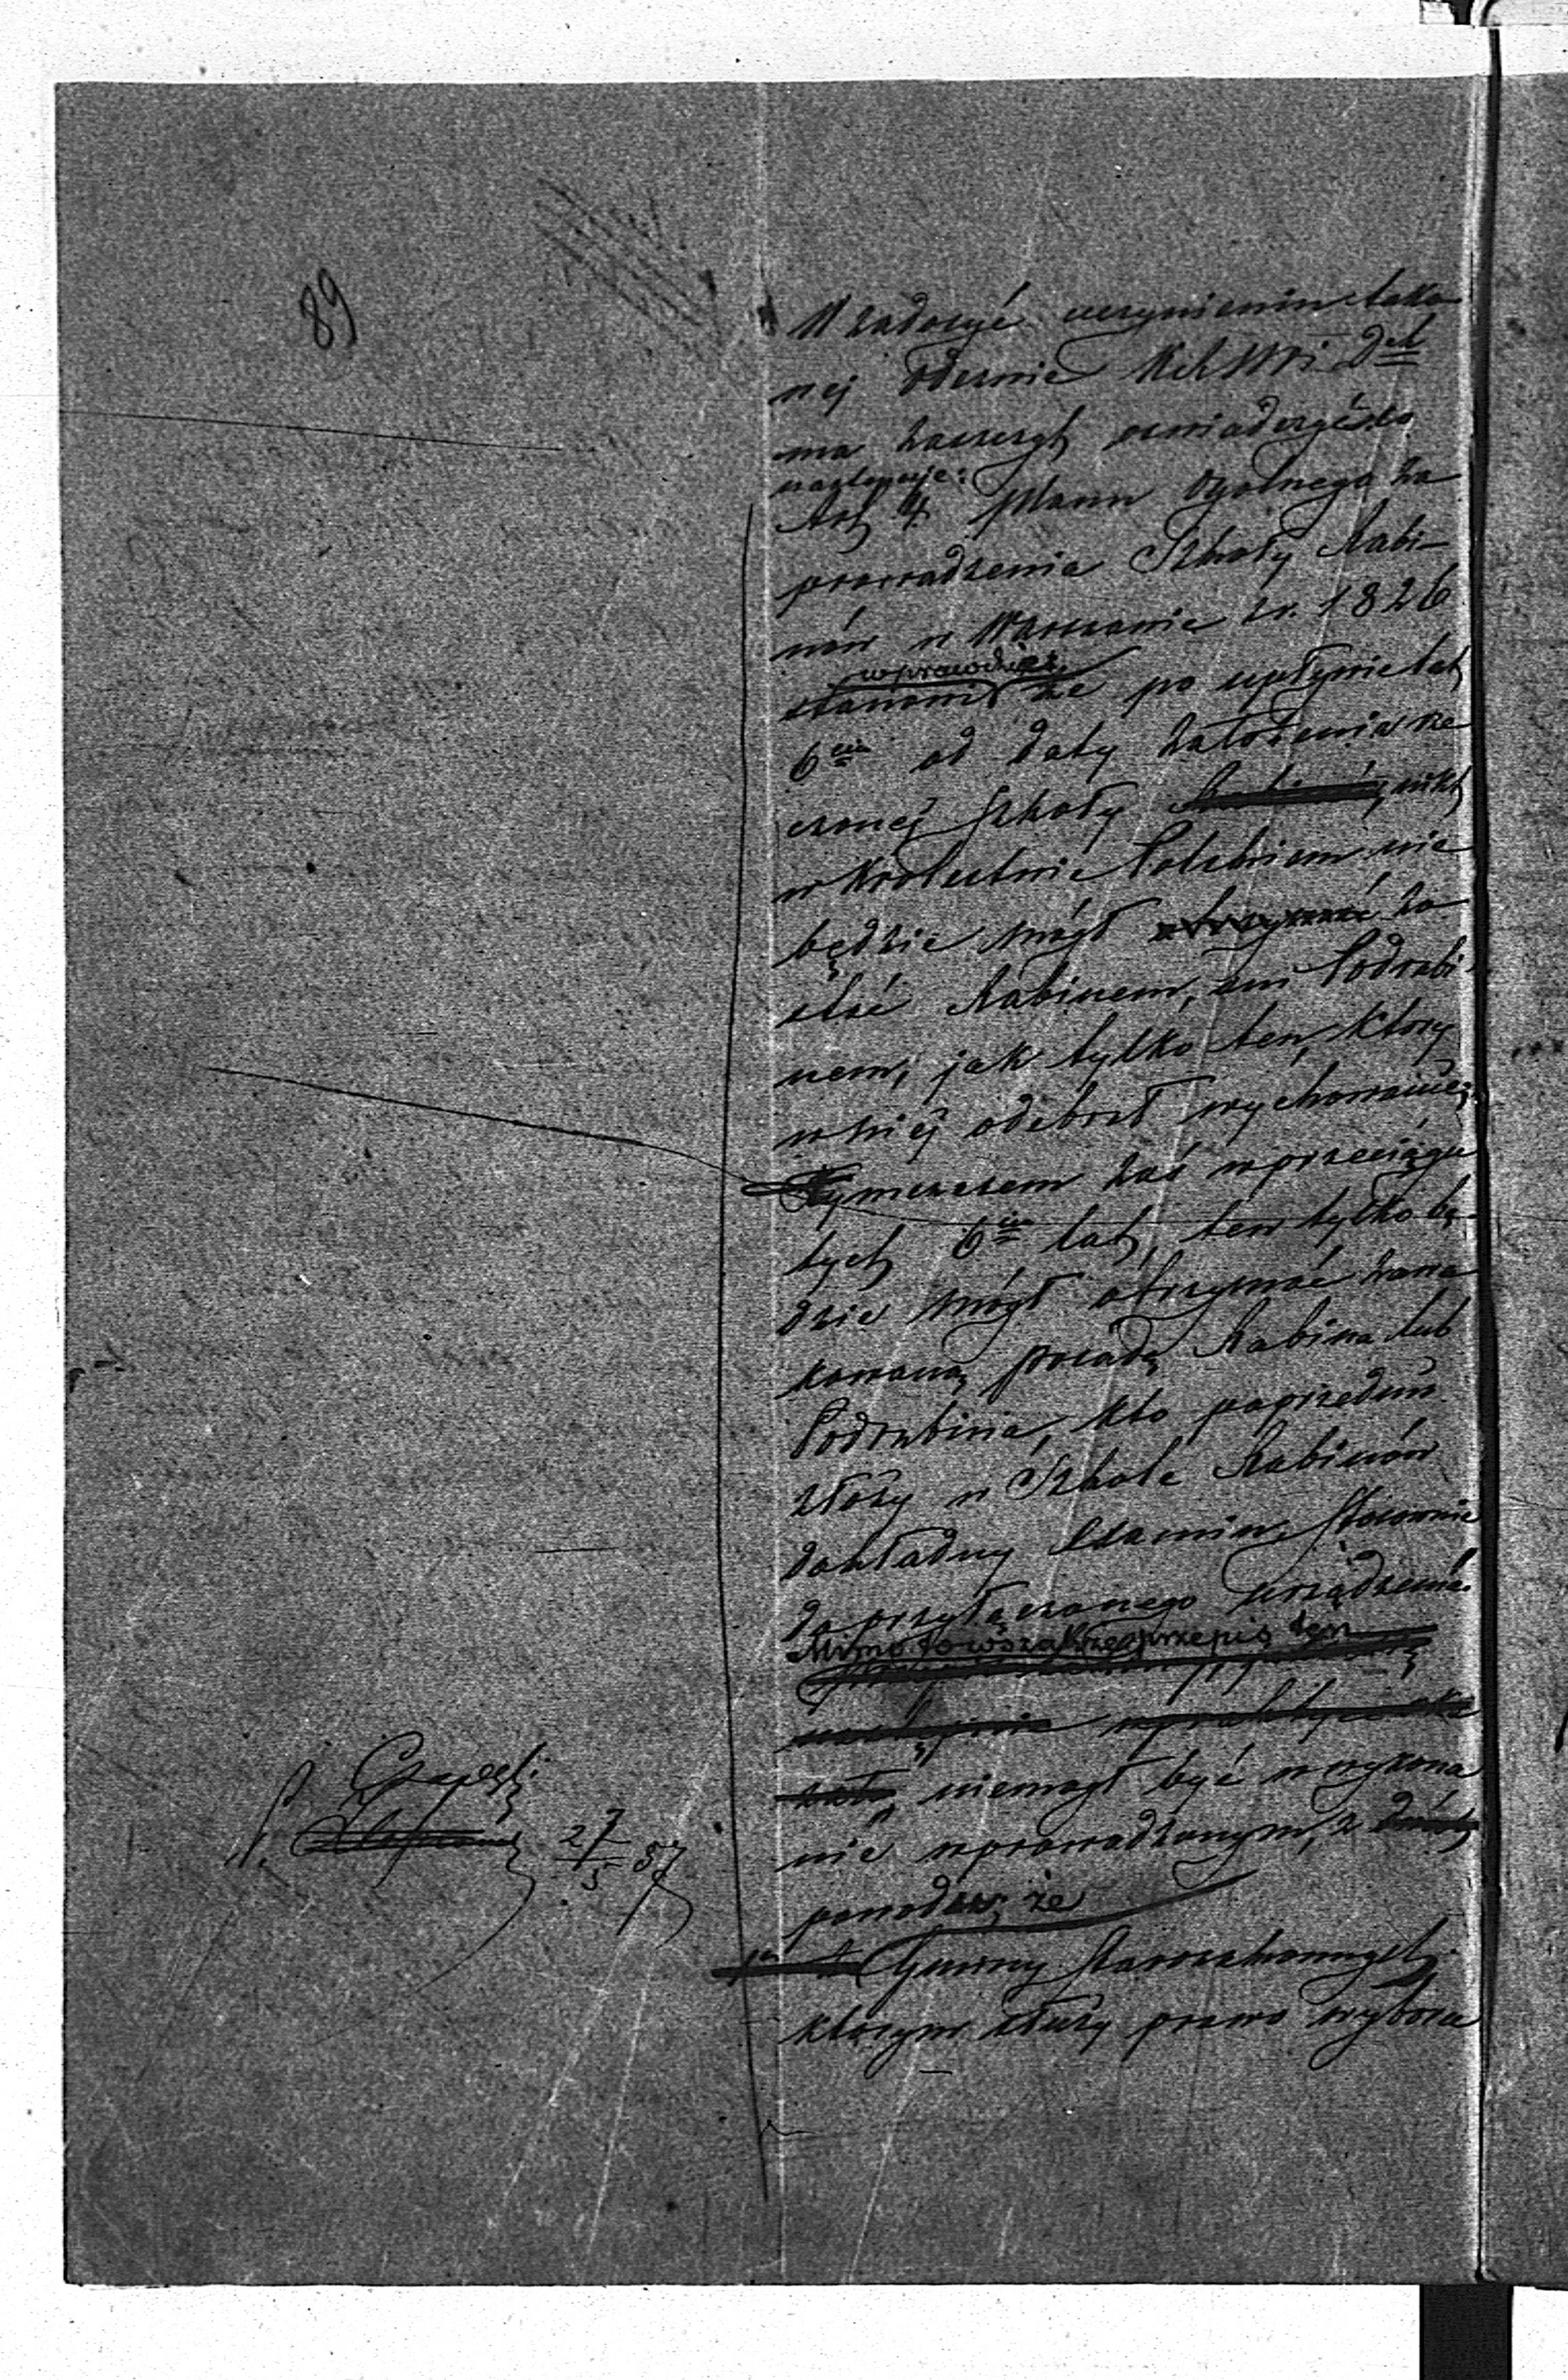 89
W zadosyć uczynieniu tako
nej odezwie K.R.S.W. i D.
ma zaszczyt oświadczyć co
następuje:
Art 4 planu ogólnego za
prowadzenia Szkoły Rabi-
nów w Warszawie z r. 1826
wprawdzie
stanowi że po upływie lat
6ciu od daty założenia rze
czonej Szkoły nikt
w Królestwie Polskiem nie
będzie mógł otrzymać zo
stać Rabinem, ani Podrabi
nem, jak tylko ten, który
w niej odebrał wychowanie,
Tymczasem zaś w przeciągu
tych 6ciu lat, ten tylko bę-
dzie mógł otrzymać zawa
kowaną posadę Rabina lub
Podrabina, kto poprzednio
złoży w Szkole Rabinów
dokładny Examin, stosownie
do przyłączonego urządzenia
Mimo to wszakże przepis ten
niemógł być w wykona
nie wprowadzonym, z
powodu że
Gminy Starozakonnych,
którym służy prawo wyboru
27/5 87